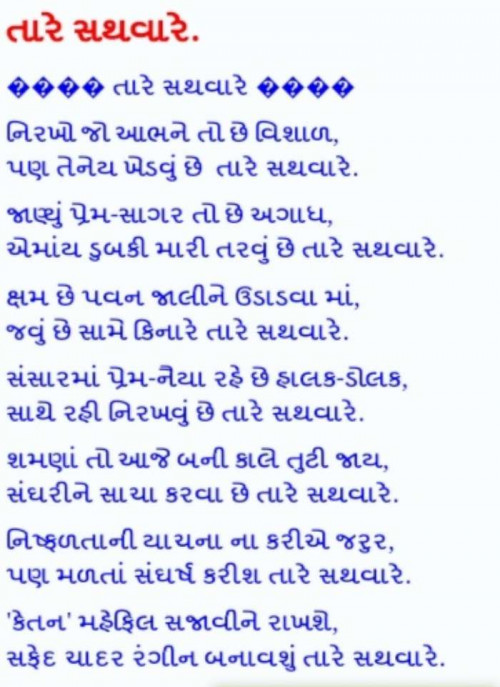 તારે સથવારે.
���� તારે સથવારે ����
નિરખો જો આભને તો છે વિશાળ,
પણ તેનેય ખેડવું છે તારે સથવારે.
જાણ્યું પ્રેમ-સાગર તો છે અગાધ,
એમાંય ડુબકી મારી તરવું છે તારે સથવારે.
ક્ષમ છે પવન જાલીને ઉડાડવા માં,
જવું છે સામે કિનારે તારે સથવારે.
સંસારમાં પ્રેમ-નૈયા રહે છે હાલક-ડોલક,
સાથે રહી નિરખવું છે તારે સથવારે.
શમણાં તો આજે બની કાલે તુટી જાય,
સંઘરીને સાચા કરવા છે તારે સથવારે.
નિષ્ફળતાની યાચના ના કરીએ જરુર,
પણ મળતાં સંઘર્ષ કરીશ તારે સથવારે.
'કેતન' મહેફિલ સજાવીને રાખશે,
સફેદ ચાદર રંગીન બનાવશું તારે સથવારે.